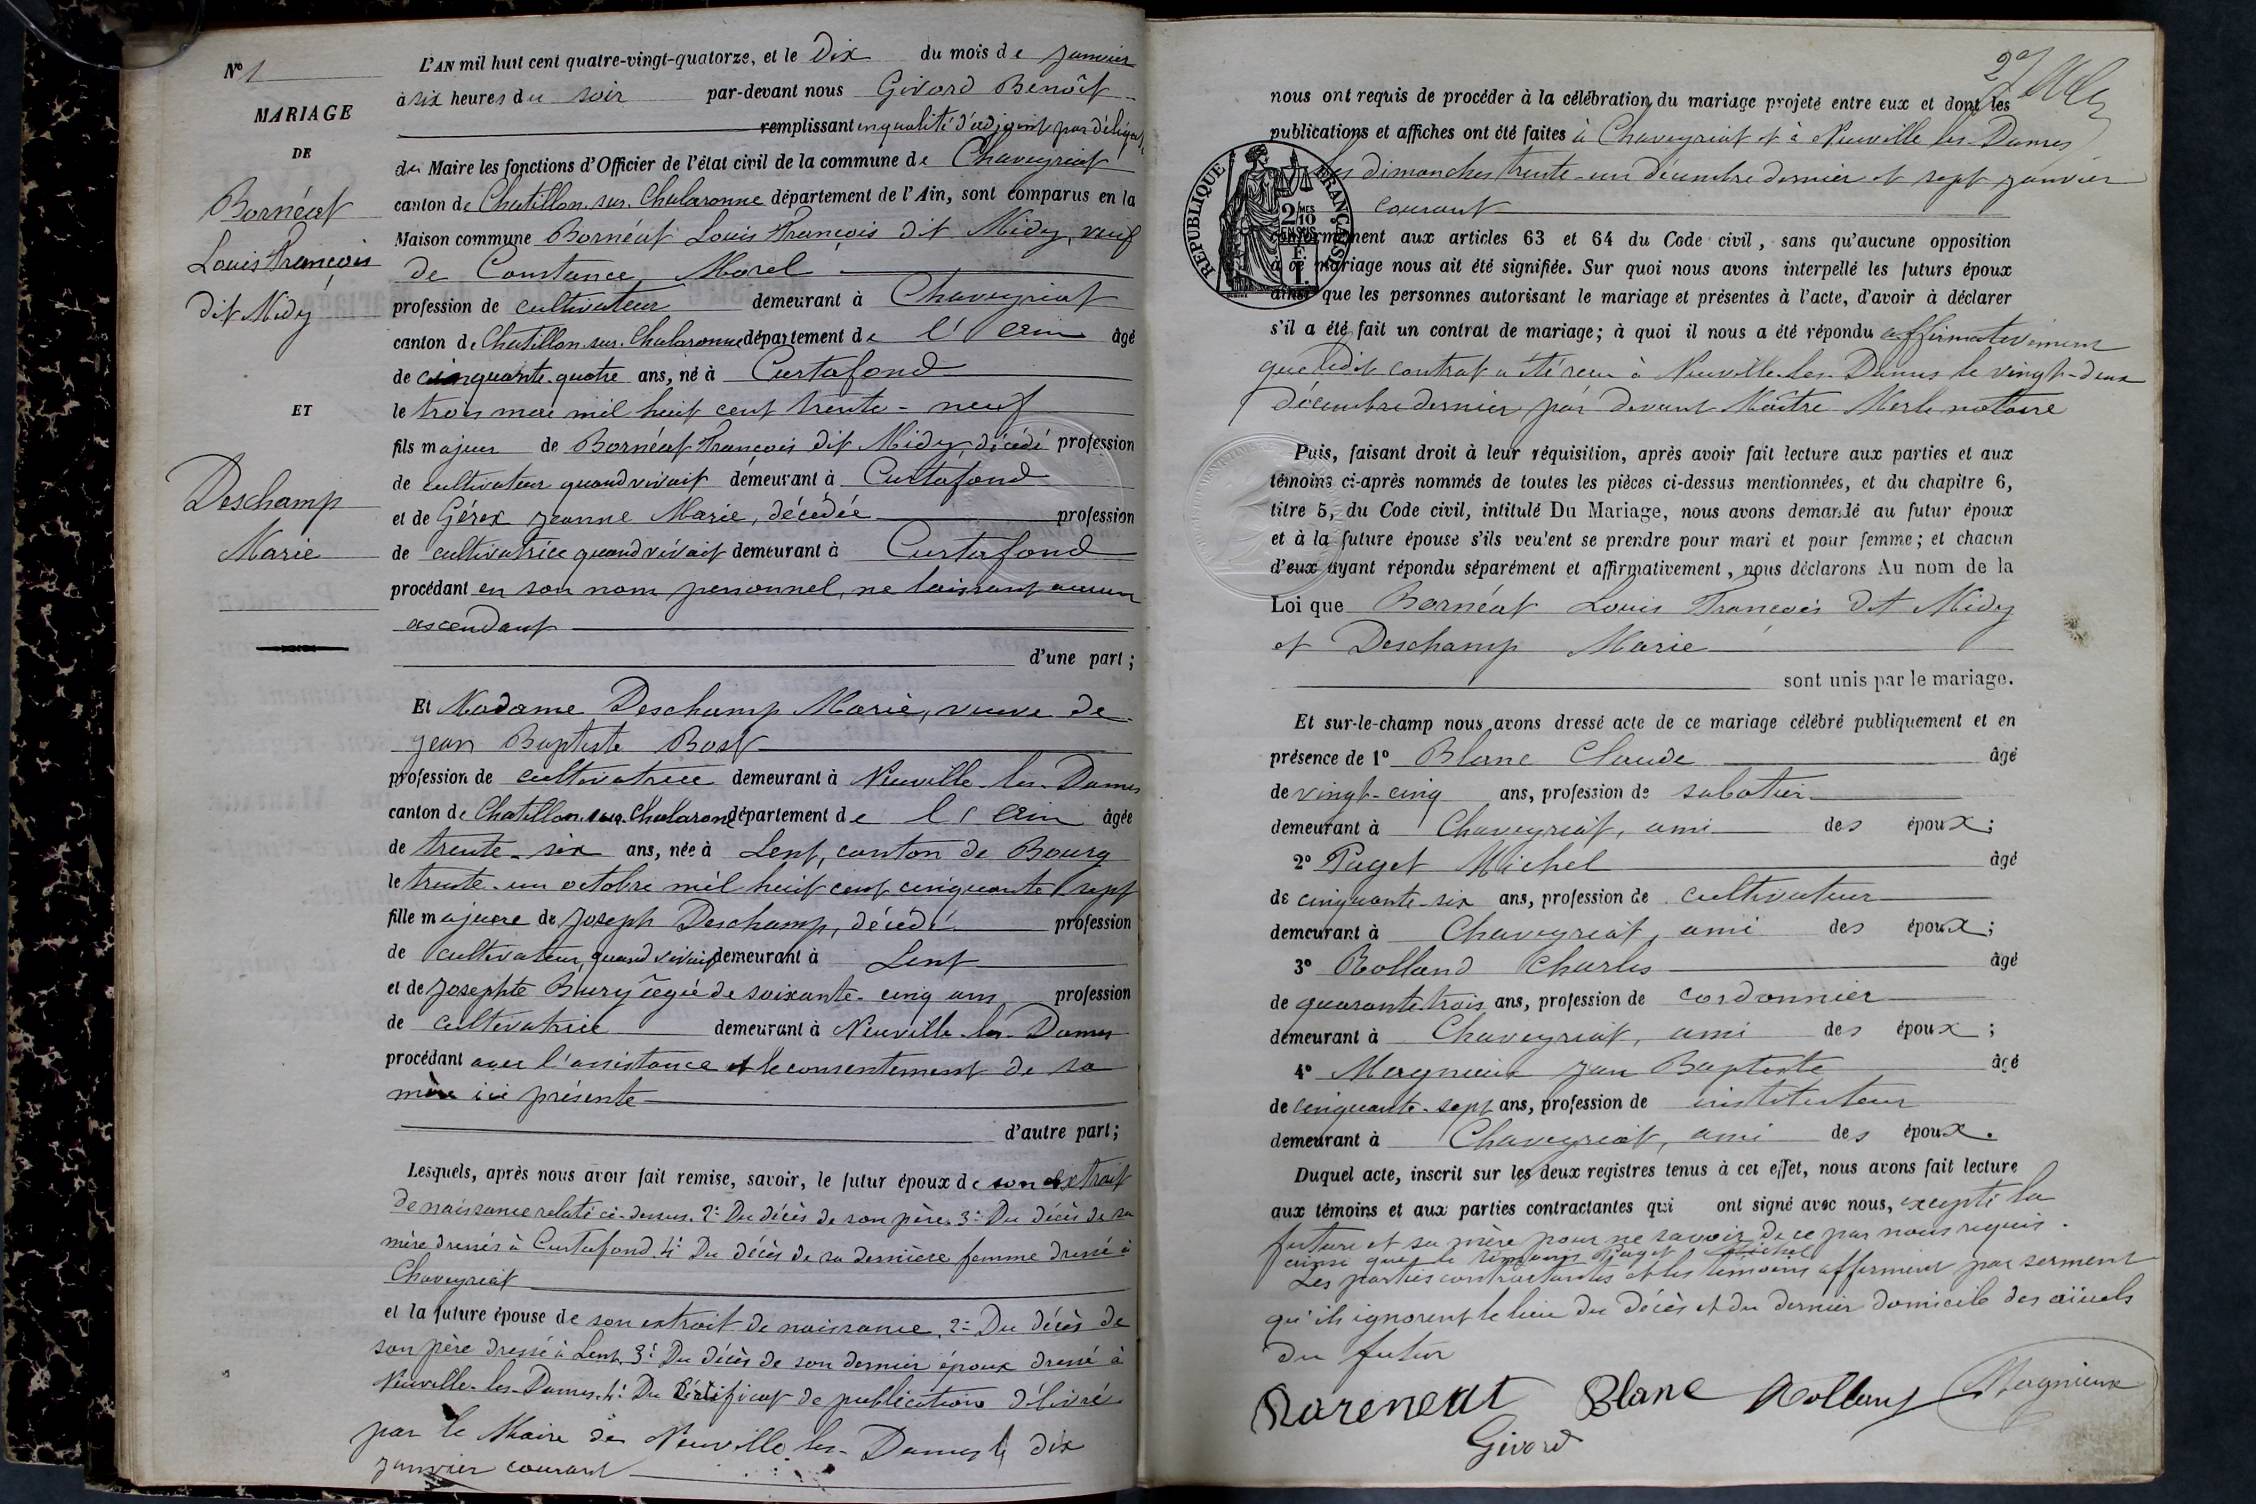 No 1
MARIAGE
DE
Bornéat
Louis François
dit Midy
ET
Deschamp
Marie
L'AN mil huit cent quatre-vingt-quatorze, et le Dix du mois de janvier
à six heures du soir par-devant nous Givord Benoît
remplissant en qualité d'adjoint par délégat.
du Maire les fonctions d'Officier de l'état civil de la commune de Chaveyriat
canton de Chatillon sur Chalaronne département de l'Ain, sont comparus en la
Maison commune Bornéat Louis François dit Midy, veuf
de Constance Morel
profession de cultivateur demeurant à Chaveyriat
canton de Chatillon sur Chalaronne département de l'Ain âgé
de cinquante-quatre ans, né à Curtafond
le trois mai mil huit cent trente-neuf
fils majeur de Bornéat François dit Midy, décédé profession
de cultivateur quand vivait demeurant à Curtafond
et de Gérex Jeanne Marie, décédée profession
de cultivatrice quand vivait demeurant à Curtafond
procédant en son nom personnel, ne laissant aucun
ascendant
d'une part ;
Et Madame Deschamp Marie, veuve de
Jean Baptiste Bost
profession de cultivatrice demeurant à Neuville les Dames
canton de Chatillon sur Chalaronne département de l'Ain âgée
de trente-six ans, née à Lent, canton de Bourg
le trente-un octobre mil huit cent cinquante sept
fille majeure de Joseph Deschamp, décédé profession
de cultivateur, quand vivait demeurant à Lent
et de Josephte Buiry âgée de soixante-cinq ans profession
de cultivatrice demeurant à Neuville-les-Dames
procédant avec l'assistance et le consentement de sa
mère ici présente
d'autre part ;
Lesquels, après nous avoir fait remise, savoir, le futur époux de son extrait
de naissance relaté ci-dessus. 2º Du décès de son père. 3º Du décès de sa
mère dressés à Curtafond. 4º Du décès de sa dernière femme dressé à
Chaveyriat
et la future épouse de son extrait de naissance. 2º Du décès de
son père dressé à Lent. 3º Du décès de son dernier époux dressé à
Neuville-les-Dames. 4º Du Certificat de publication délivré
par le Maire de Neuville les-Dames le dix
janvier courant
nous ont requis de procéder à la célébration du mariage projeté entre eux et dont les
publications et affiches ont été faites à Chaveyriat et à Neuville les-Dames
les dimanches trente-un décembre dernier et sept janvier
courant
REPUBLIQUE FRANÇAISE
2/10 MES EN SUS
conformément aux articles 63 et 64 du Code civil, sans qu'aucune opposition
à ce mariage nous ait été signifiée. Sur quoi nous avons interpellé les futurs époux
ainsi que les personnes autorisant le mariage et présentes à l'acte, d'avoir à déclarer
s'il a été fait un contrat de mariage; à quoi il nous a été répondu affirmativement
que ledit contrat a été reçu à Neuville-les-Dames le vingt-deux
décembre dernier par devant Maître Merle notaire
Puis, faisant droit à leur réquisition, après avoir fait lecture aux parties et aux
témoins ci-après nommés de toutes les pièces ci-dessus mentionnées, et du chapitre 6,
titre 5, du Code civil, intitulé Du Mariage, nous avons demandé au futur époux
et à la future épouse s'ils veulent se prendre pour mari et pour femme ; et chacun
d'eux ayant répondu séparément et affirmativement, nous déclarons Au nom de la
Loi que Bornéat Louis François dit Midy
et Deschamp Marie
sont unis par le mariage.
Et sur-le-champ nous avons dressé acte de ce mariage célébré publiquement et en
présence de 1º Blanc Claude âgé
de vingt-cinq ans, profession de sabotier
demeurant à Chaveyriat, ami des époux ;
2º Paget Michel âgé
de cinquante-six ans, profession de cultivateur
demeurant à Chaveyriat, ami des époux ;
3º Rolland Charles âgé
de quarante-trois ans, profession de cordonnier
demeurant à Chaveyriat, ami des époux ;
4º Magnieux Jean Baptiste âgé
de cinquante-sept ans, profession de instituteur
demeurant à Chaveyriat, ami des époux.
Duquel acte, inscrit sur les deux registres tenus à cet effet, nous avons fait lecture
aux témoins et aux parties contractantes qui ont signé avec nous, excepté la
future et sa mère pour ne savoir de ce par nous requis.
ainsi que le témoin Paget Michel
Les parties contractantes et les témoins affirment par serment
qu'ils ignorent le lieu du décès et du dernier domicile des aïeuls
du futur
Blanc Rolland Magnieux
Givord